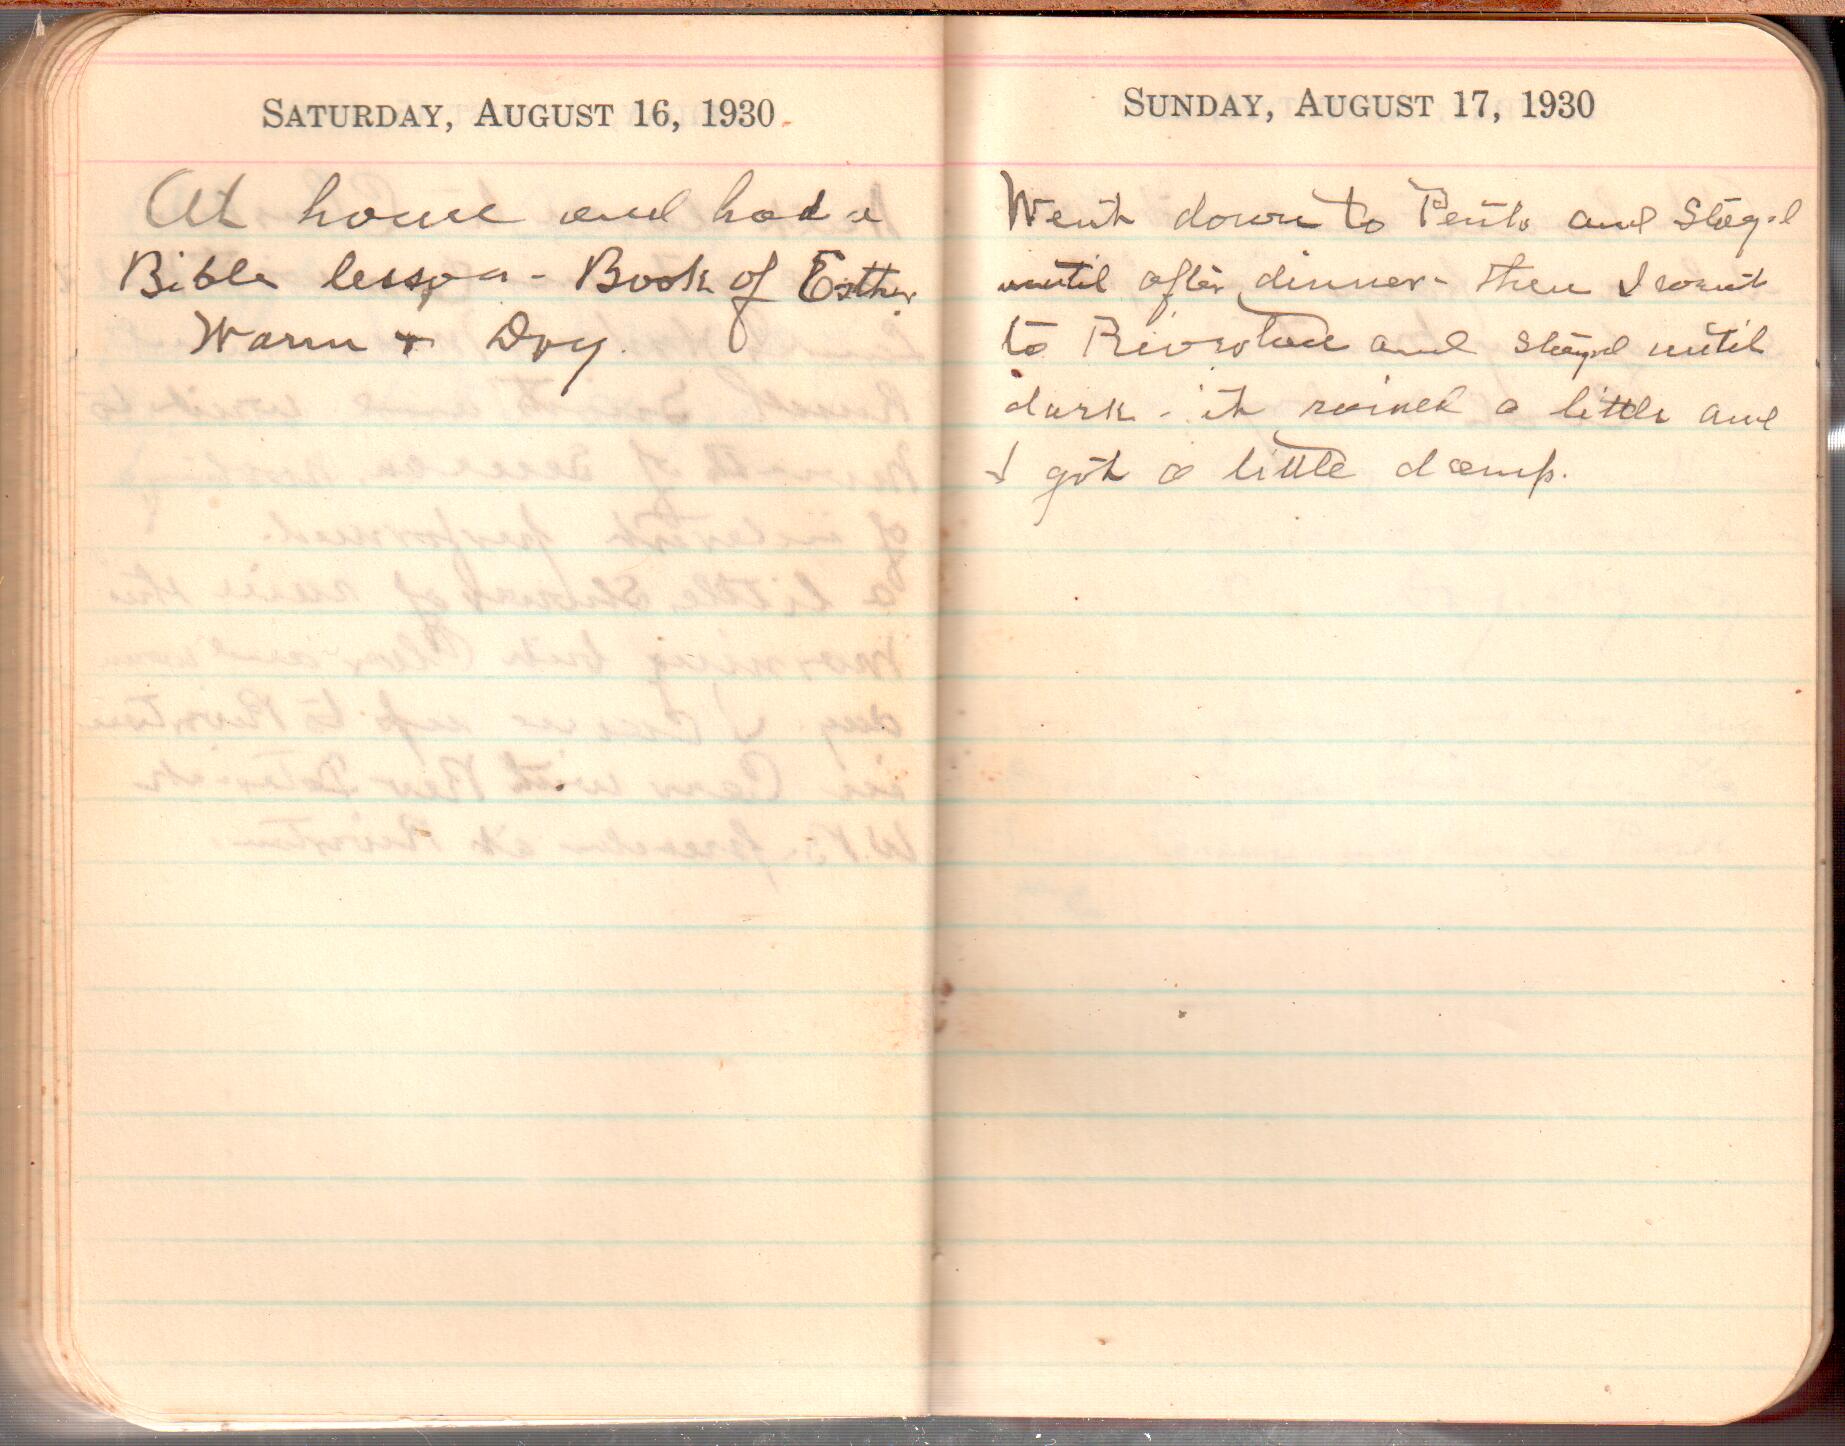 SATURDAY, AUGUST 16, 1930
At home and had a
Bible lesson - Book of Esther
Warm + Dry.
SUNDAY, AUGUST 17, 1930
Went down to and Stayed
until after dinner - then I went
to Riverton and stayed until
dark - it rained a little and
I got a little damp.